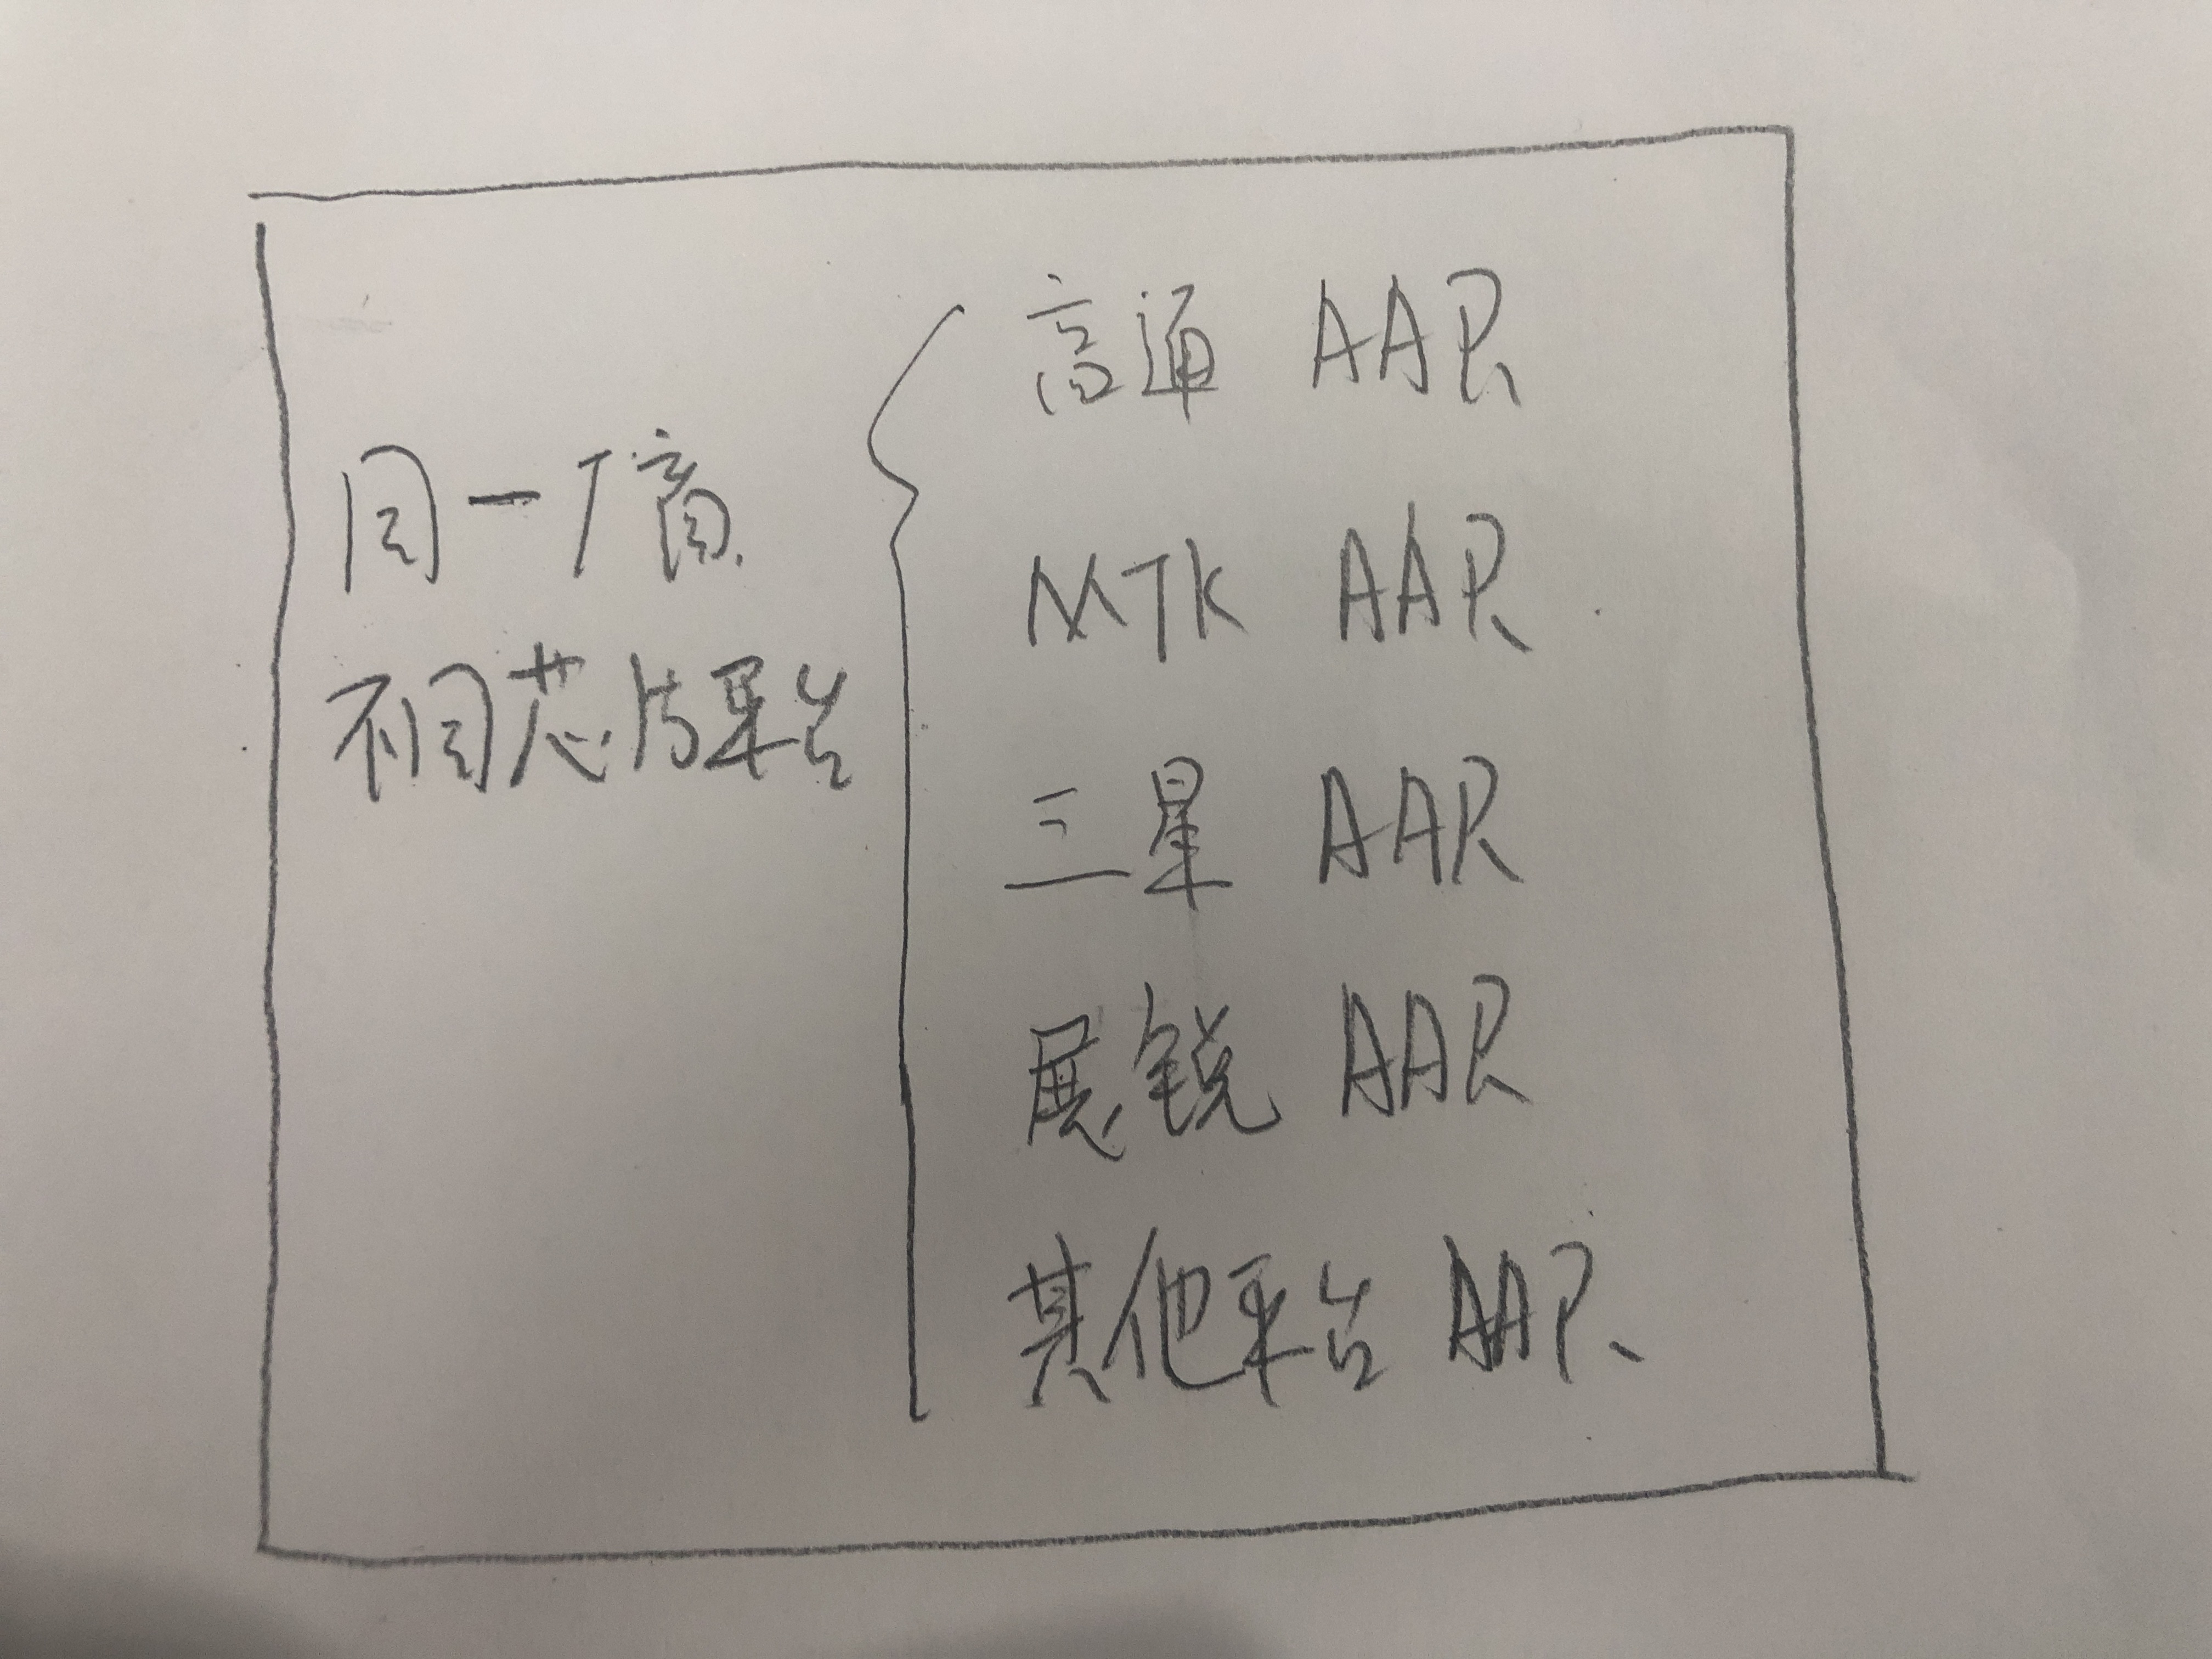 同一厂商
不同芯片平台
高通 AAR
MTK AAR
三星 AAR
展锐 AAR
其他平台 AAR